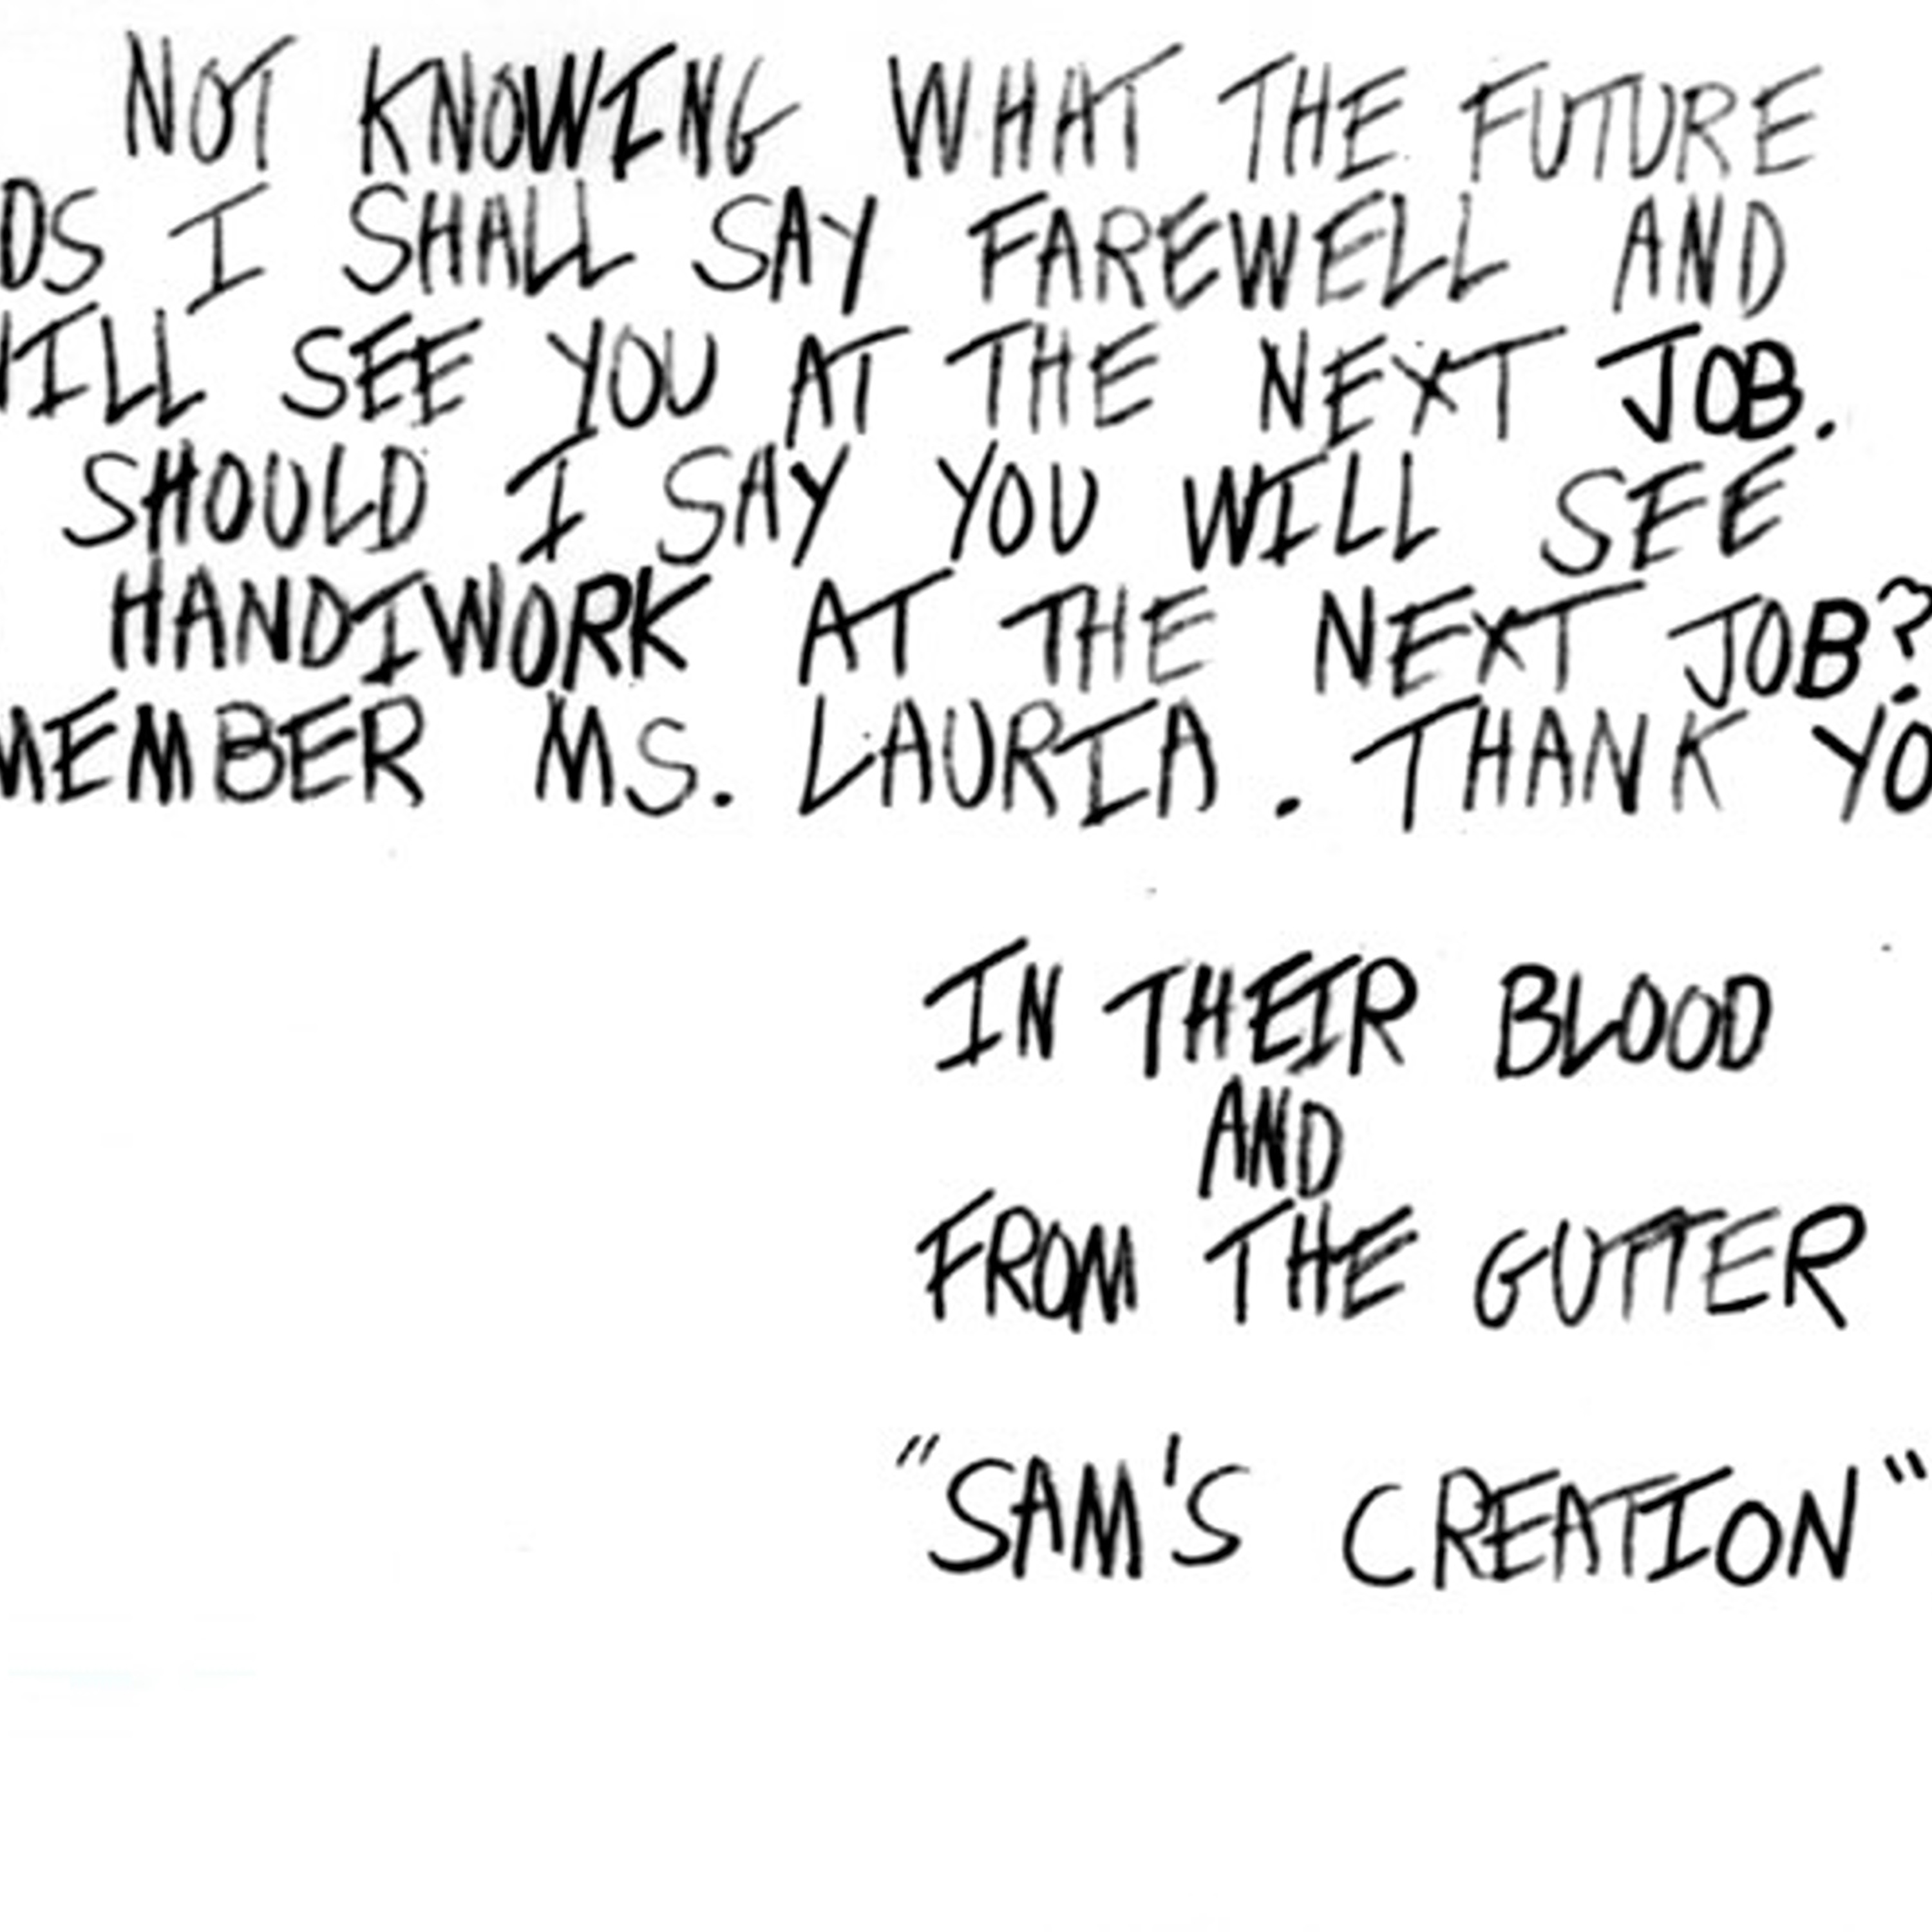 NOT KNOWING WHAT THE FUTURE
DS I SHALL SAY FAREWELL AND
ILL SEE YOU AT THE NEXT JOB.
SHOULD I SAY YOU WILL SEE
HANDIWORK AT THE NEXT JOB?
MEMBER MS. LAURIA. THANK YO
IN THEIR BLOOD
AND
FROM THE GUTTER
"SAM'S CREATION"